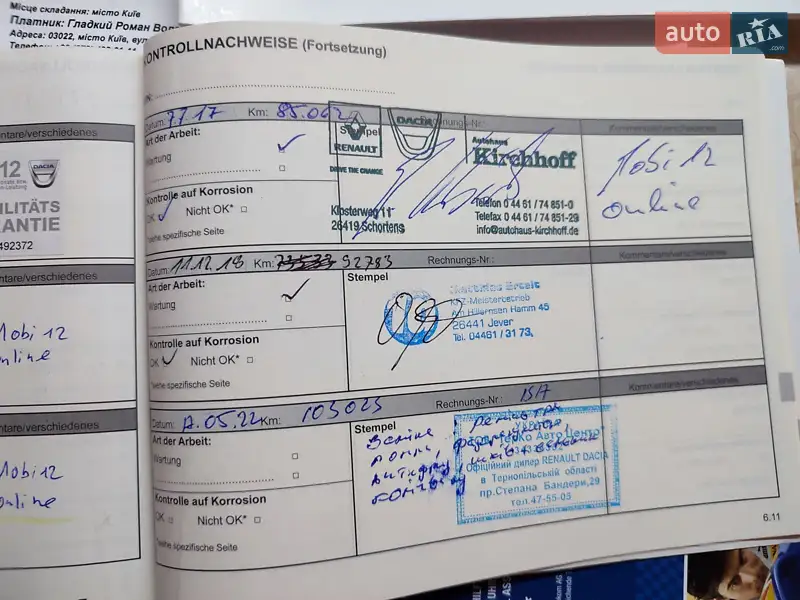 Місце складання: місто Київ
Платник: Гладкий Роман
Адреса: 03022, місто Київ, вул
auto RIA.com
KONTROLLNACHWEISE (Fortsetzung)
Datum: 7.7.17 Km: 85.002
Rechnungs-Nr.:
Kommentare/verschiedenes
Art der Arbeit:
Wartung
Stempel
RENAULT
DRIVE THE CHANGE
DACIA
Autohaus
Kirchhoff
Klosterweg 11
26419 Schortens
Telefon 0 44 61 / 74 851-0
Telefax 0 44 61 / 74 851-29
info@autohaus-kirchhoff.de
Mobi 12
online
Kontrolle auf Korrosion
OK Nicht OK*
*siehe spezifische Seite
Datum: 11.12.18 Km: 92783
Rechnungs-Nr.:
Kommentare/verschiedenes
Art der Arbeit:
Wartung
Stempel
KFZ-Meisterbetrieb
Am Hillernsen Hamm 45
26441 Jever
Tel. 04461 / 31 73
Kontrolle auf Korrosion
OK Nicht OK*
*siehe spezifische Seite
Datum: 17.05.22 Km: 103023
Rechnungs-Nr.:
Kommentare/verschiedenes
Art der Arbeit:
Wartung
Stempel
Авто Центр
Офіційний дилер RENAULT DACIA
в Тернопільській області
пр.Степана Бандери,29
тел.47-55-05
Kontrolle auf Korrosion
OK Nicht OK*
*siehe spezifische Seite
6.11
ntare/verschiedenes
12
DACIA
ILITÄTS
RANTIE
492372
ntare/verschiedenes
Mobi 12
online
ntare/verschiedenes
Mobi 12
online